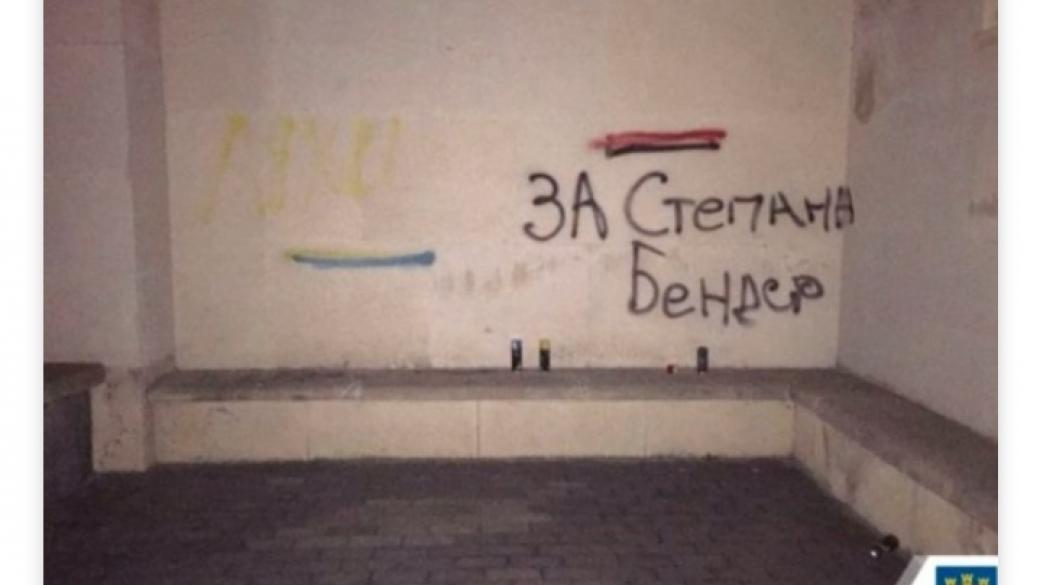 ЗА Степана
Бендер